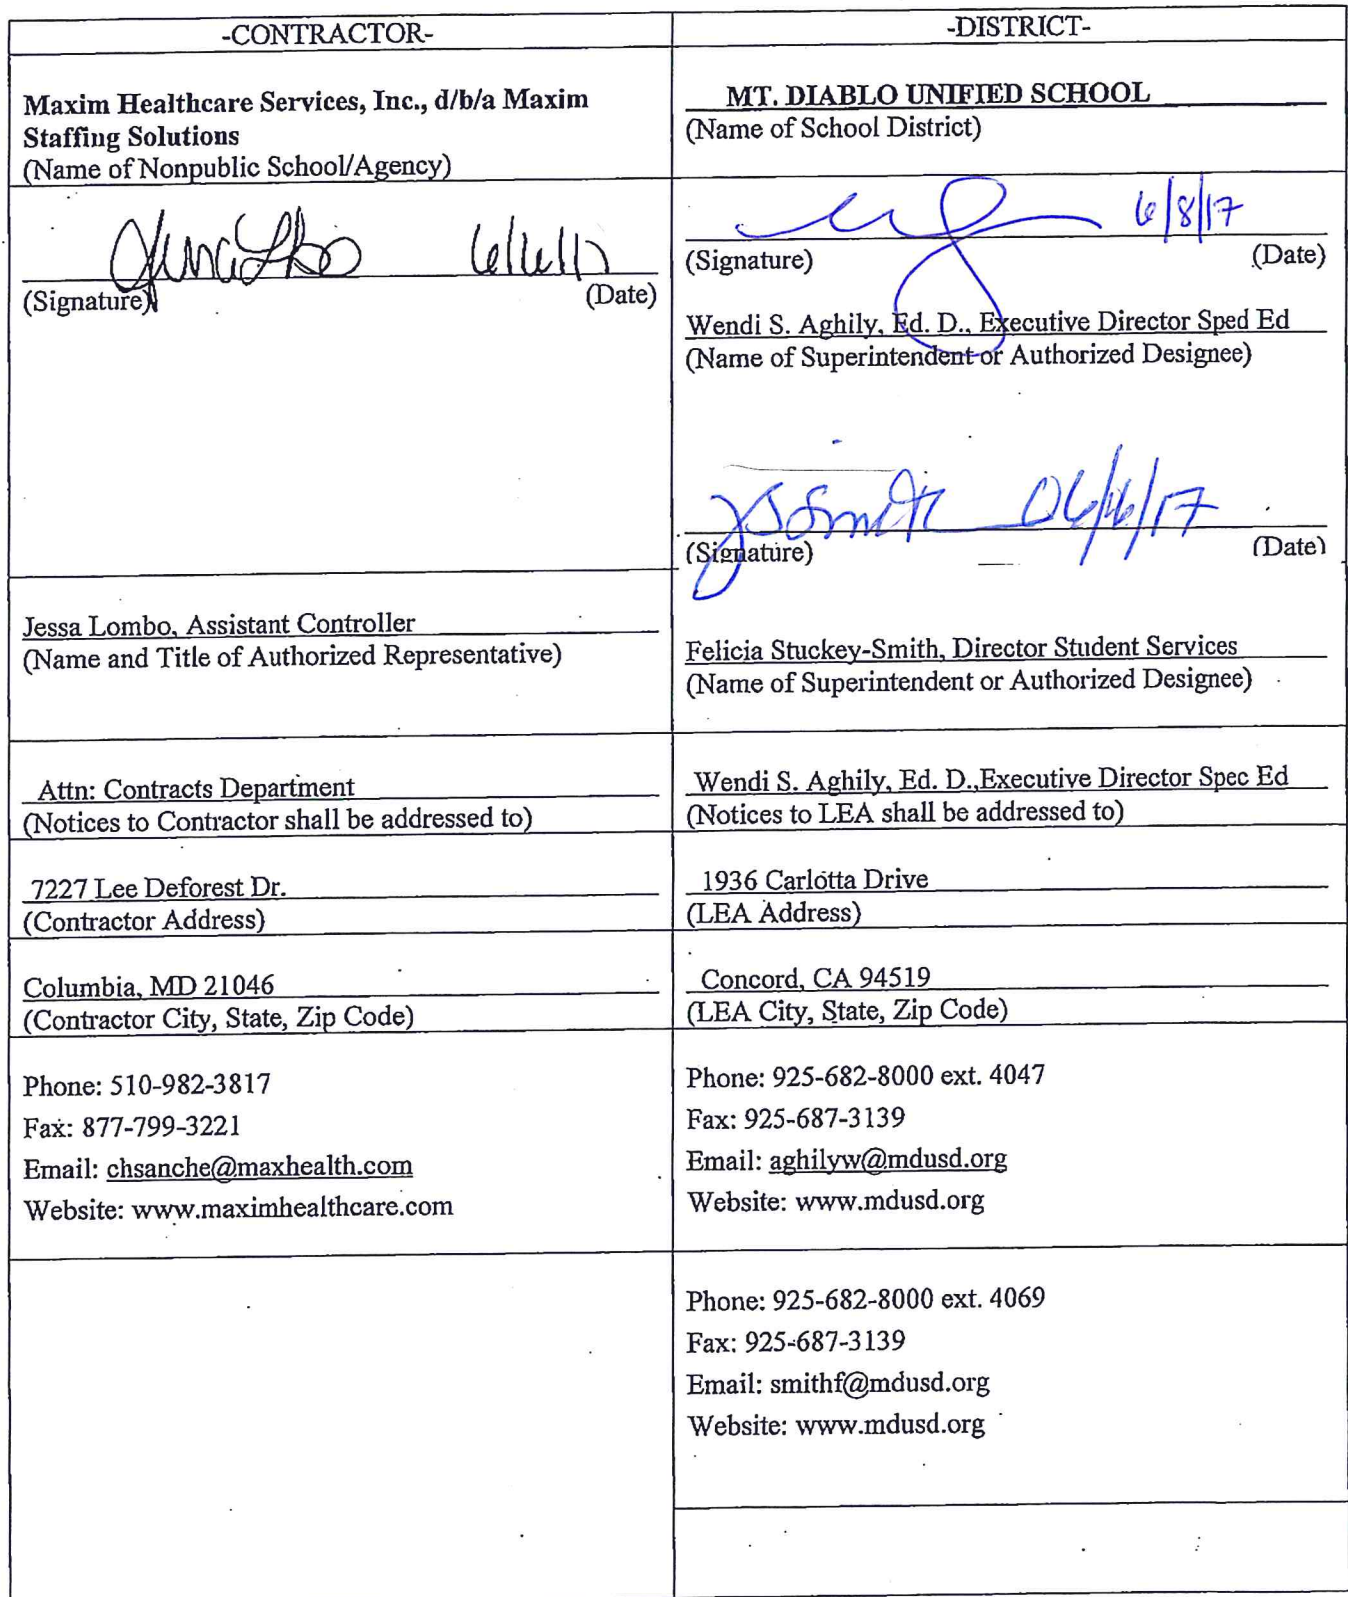 -CONTRACTOR-
Maxim Healthcare Services, Inc., d/b/a Maxim
Staffing Solutions
(Name of Nonpublic School/Agency)
(Signature) (Date)
Jessa Lombo, Assistant Controller
(Name and Title of Authorized Representative)
Attn: Contracts Department
(Notices to Contractor shall be addressed to)
7227 Lee Deforest Dr.
(Contractor Address)
Columbia, MD 21046
(Contractor City, State, Zip Code)
Phone: 510-982-3817
Fax: 877-799-3221
Email: chsanche@maxhealth.com
Website: www.maximhealthcare.com
-DISTRICT-
MT. DIABLO UNIFIED SCHOOL
(Name of School District)
6/8/17
(Signature) (Date)
Wendi S. Aghily, Ed. D., Executive Director Sped Ed
(Name of Superintendent or Authorized Designee)
(Signature) (Date)
Felicia Stuckey-Smith, Director Student Services
(Name of Superintendent or Authorized Designee)
Wendi S. Aghily, Ed. D.,Executive Director Spec Ed
(Notices to LEA shall be addressed to)
1936 Carlotta Drive
(LEA Address)
Concord, CA 94519
(LEA City, State, Zip Code)
Phone: 925-682-8000 ext. 4047
Fax: 925-687-3139
Email: aghilyw@mdusd.org
Website: www.mdusd.org
Phone: 925-682-8000 ext. 4069
Fax: 925-687-3139
Email: smithf@mdusd.org
Website: www.mdusd.org